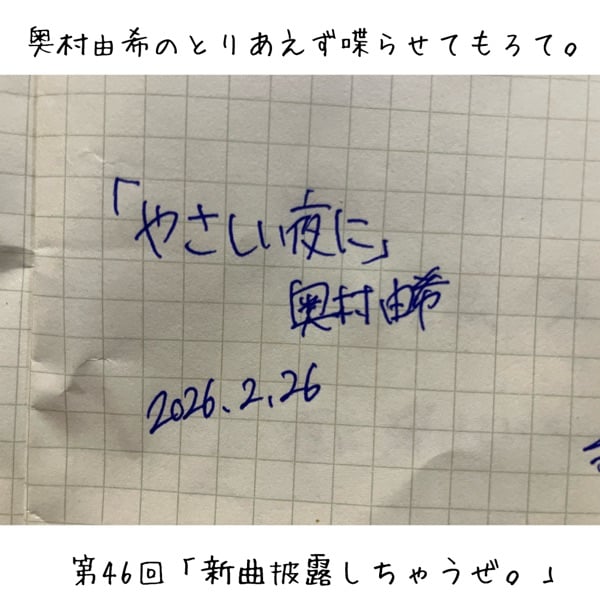 奥村由希のとりあえず喋らせてもろて。
「やさしい夜に」
奥村由希
2026.2.26
第46回「新曲披露しちゃうぜ。」